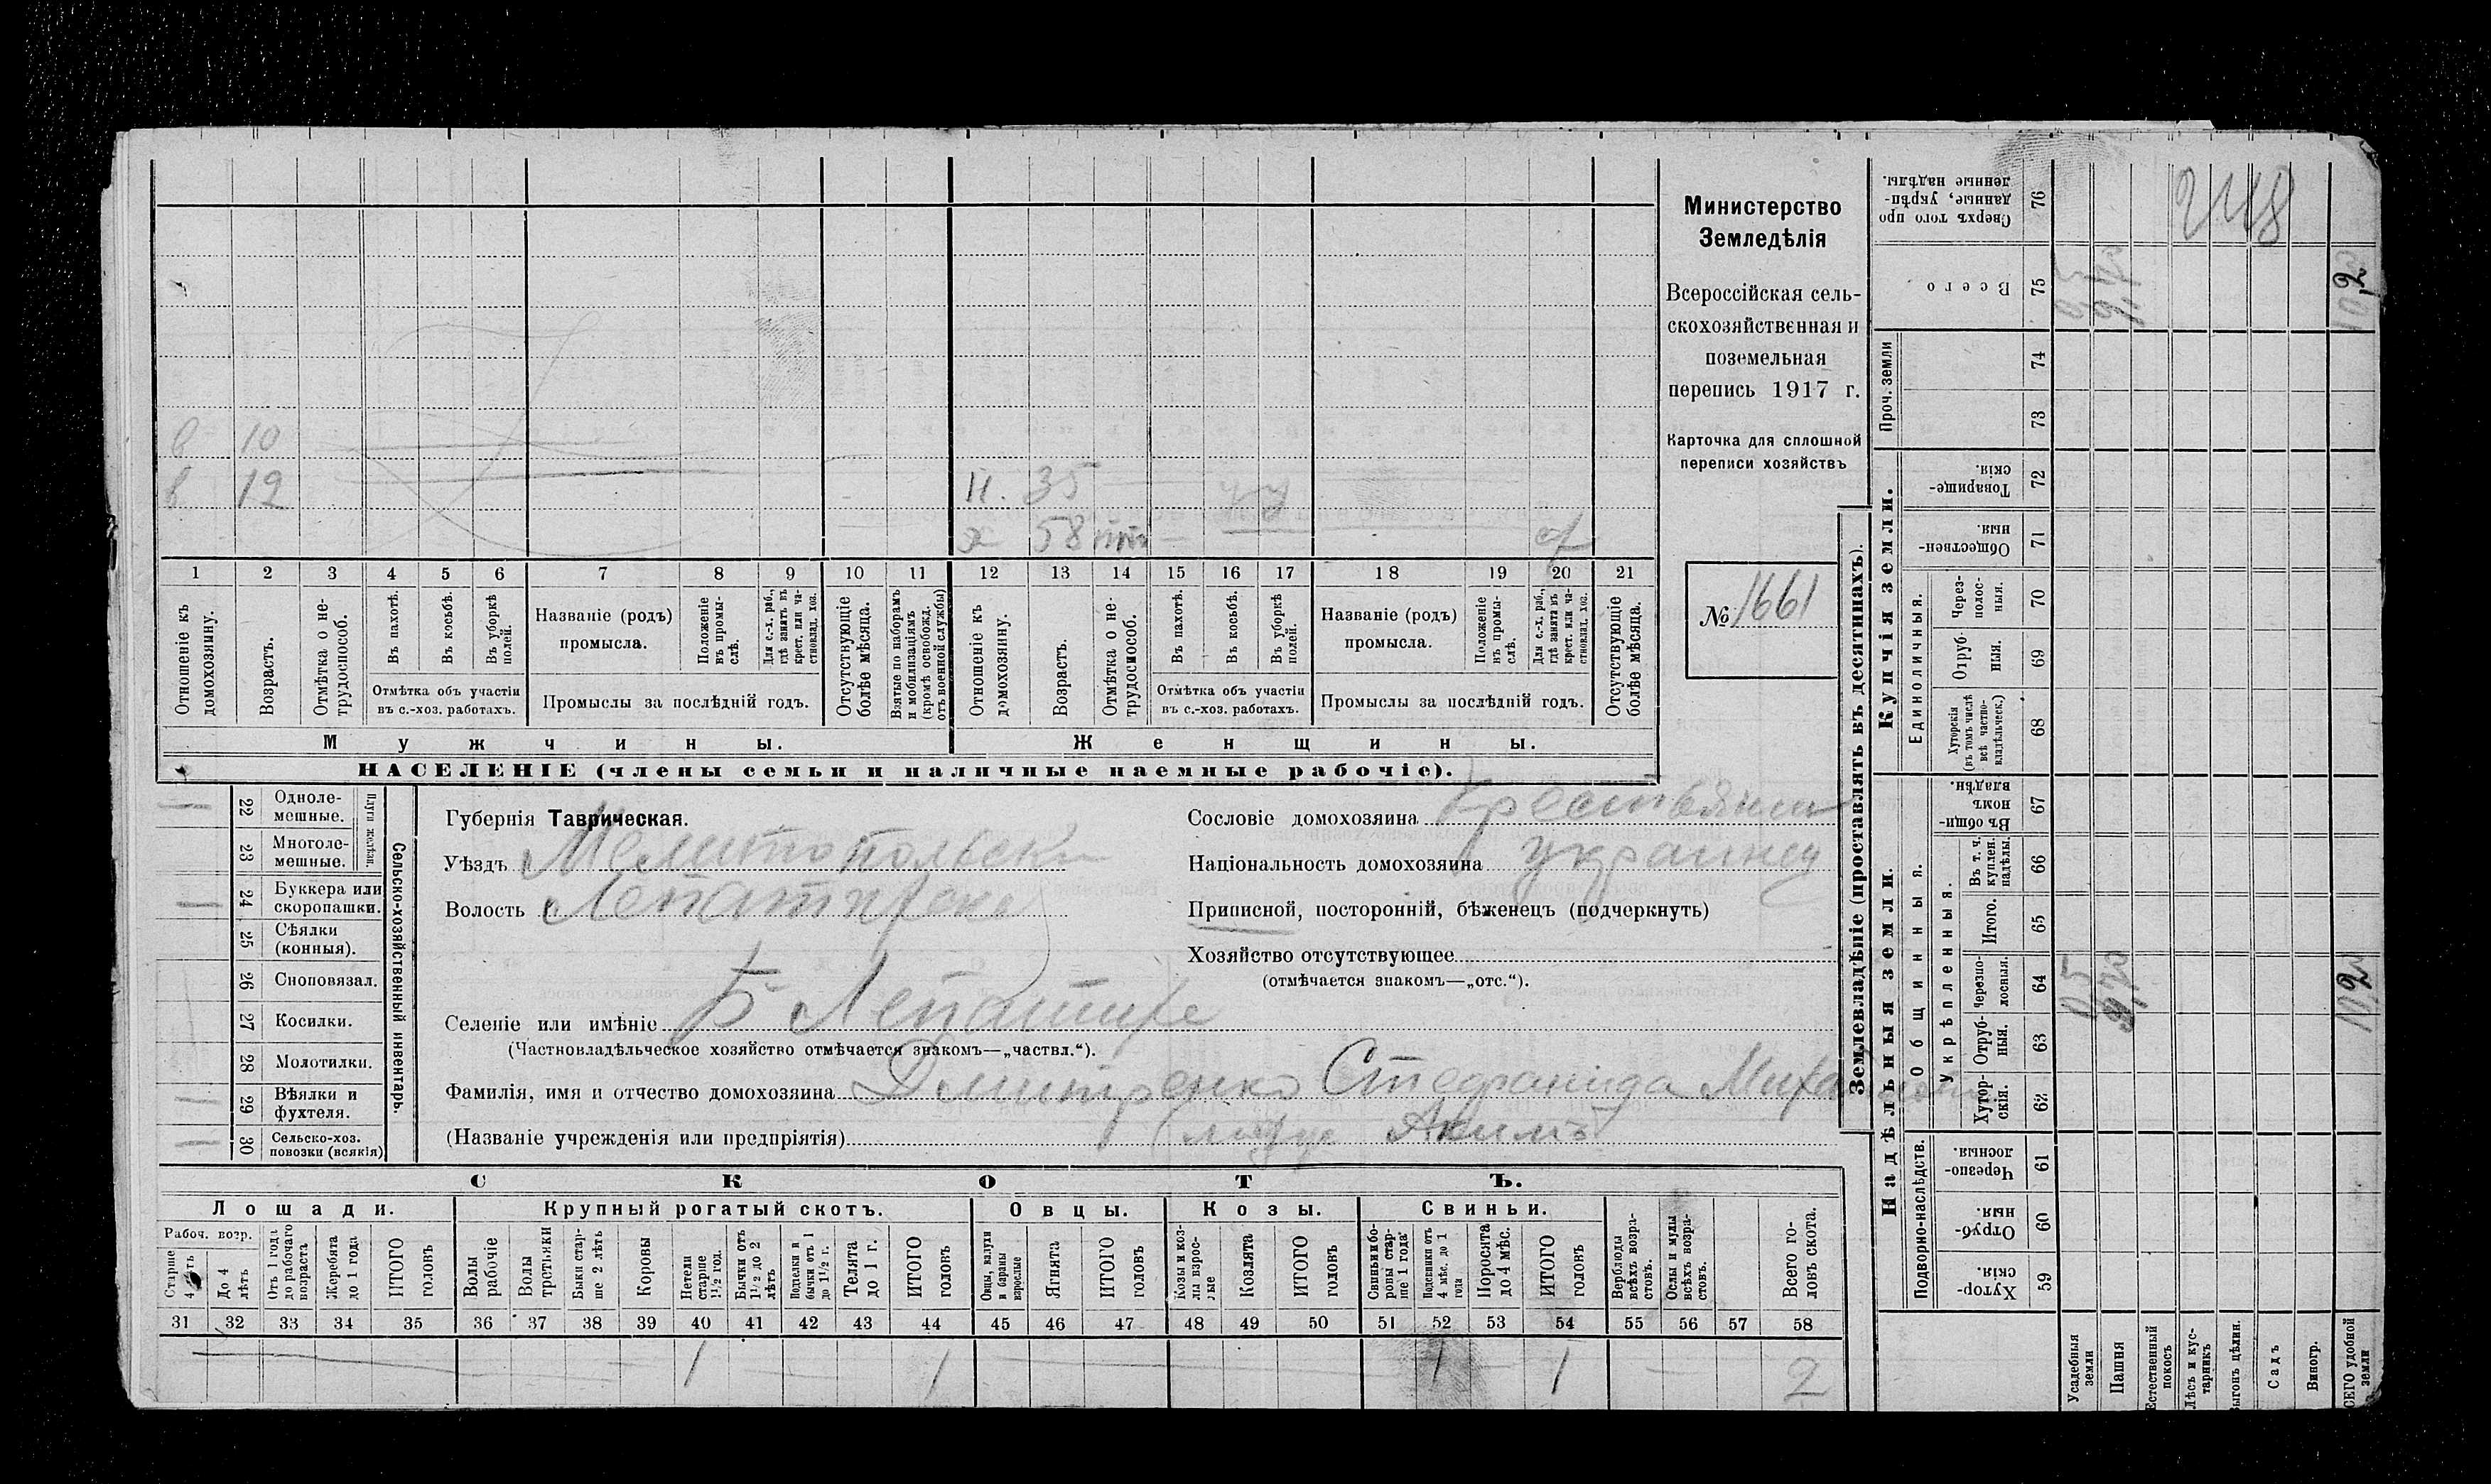 Министерство
Земледѣлія
Всероссійская сель-
скохозяйственная и
поземельная
перепись 1917 г.
Карточка для сплошной
переписи хозяйствъ
№ 1661
в 10
в 12
II. 35
х 58
1 2 3 4 5 6 7 8 9 10 11 12 13 14 15 16 17 18 19 20 21
Отношеніе къ домохозяину.
Возрастъ.
Отмѣтка о не-трудоспособ.
Въ пахотѣ.
Въ косьбѣ.
Въ уборкѣ полей.
Отмѣтка объ участіи
въ с.-хоз. работахъ.
Названіе (родъ)
промысла.
Положеніе въ промы-слѣ.
Для с.-х. раб., гдѣ занятъ въ крест. или ча-стновлад. хоз.
Промыслы за послѣдній годъ.
Отсутствующіе болѣе мѣсяца.
Взятые по наборамъ и мобилизаціямъ (кромѣ освобожд. отъ военной службы)
Отношеніе къ домохозяину.
Возрастъ.
Отмѣтка о не-трудоспособ.
Въ пахотѣ.
Въ косьбѣ.
Въ уборкѣ полей.
Отмѣтка объ участіи
въ с.-хоз. работахъ.
Названіе (родъ)
промысла.
Положеніе въ промы-слѣ.
Для с.-х. раб., гдѣ занята въ крест. или ча-стновлад. хоз.
Промыслы за послѣдній годъ.
Отсутствующіе болѣе мѣсяца.
Мужчины.
Женщины.
НАСЕЛЕНІЕ (члены семьи и наличные наемные рабочіе).
Сельско-хозяйственный инвентарь.
Плуги желѣзн.
22 Одноле-мешные.
23 Многоле-мешные.
24 Буккера или скоропашки.
25 Сѣялки (конныя).
26 Сноповязал.
27 Косилки.
28 Молотилки.
29 Вѣялки и фухтеля.
30 Сельско-хоз. повозки (всякія)
Губернія Таврическая.
Уѣздъ Мелитопольски
Волость
Селеніе или имѣніе Б
(Частновладѣльческое хозяйство отмѣчается знакомъ—„частвл.“).
Фамилія, имя и отчество домохозяина Дмитренко Стефанида
(Названіе учрежденія или предпріятія) Акимъ
Сословіе домохозяина Крестьянин
Національность домохозяина украинец
Приписной, посторонній, бѣженецъ (подчеркнуть)
Хозяйство отсутствующее
(отмѣчается знакомъ—„отс.“).
СКОТЪ.
Лошади.
Рабоч. возр.
Старше 4 лѣтъ
До 4 лѣтъ
Отъ 1 года до рабочаго возраста
Жеребята до 1 года
ИТОГО головъ
Крупный рогатый скотъ.
Волы рабочіе
Волы третьяки
Быки стар-ше 2 лѣтъ
Коровы
Нетели старше 1½ год.
Бычки отъ 1½ до 2 лѣтъ
Подтелки и бычки отъ 1 до 1½ г.
Телята до 1 г.
ИТОГО головъ
Овцы.
Овцы, валухи и бараны взрослые
Ягнята
ИТОГО головъ
Козы.
Козы и коз-лы взрос-лые
Козлята
ИТОГО головъ
Свиньи.
Свиньи и бо-ровы стар-ше 1 года
Подсвинки отъ 4 мѣс. до 1 года
Поросята до 4 мѣс.
ИТОГО головъ
Верблюды всѣхъ возра-стовъ.
Ослы и мулы всѣхъ возра-стовъ.
Всего го-ловъ скота.
31 32 33 34 35 36 37 38 39 40 41 42 43 44 45 46 47 48 49 50 51 52 53 54 55 56 57 58
1 1 1 1 2
Землевладѣніе (проставлять въ десятинахъ).
Надѣльныя земли.
Подворно-наслѣдств.
59 Хутор-скія
60 Отруб-ныя
61 Черезпо-лосныя.
Общинныя.
Укрѣпленныя.
62 Хутор-скія.
63 Отруб-ныя.
64 Черезпо-лосныя.
65 Итого.
66 Въ т. ч. куплен. надѣлы.
67 Въ общи-номъ владѣн.
Купчія земли.
Единоличныя.
68 Хуторскія (въ томъ числѣ всѣ частно-владѣльческ.)
69 Отруб-ныя.
70 Через-полос-ныя.
71 Обществен-ныя.
72 Товарище-скія.
Проч. земли
73
74
75 Всего
76 Сверхъ того про-данные, укрѣп-ленные надѣлы.
Усадебныя земли
Пашня
Естественный покосъ
Лѣсъ и кус-тарникъ
Выгонъ цѣлин.
Садъ
Виногр.
ВСЕГО удобной земли